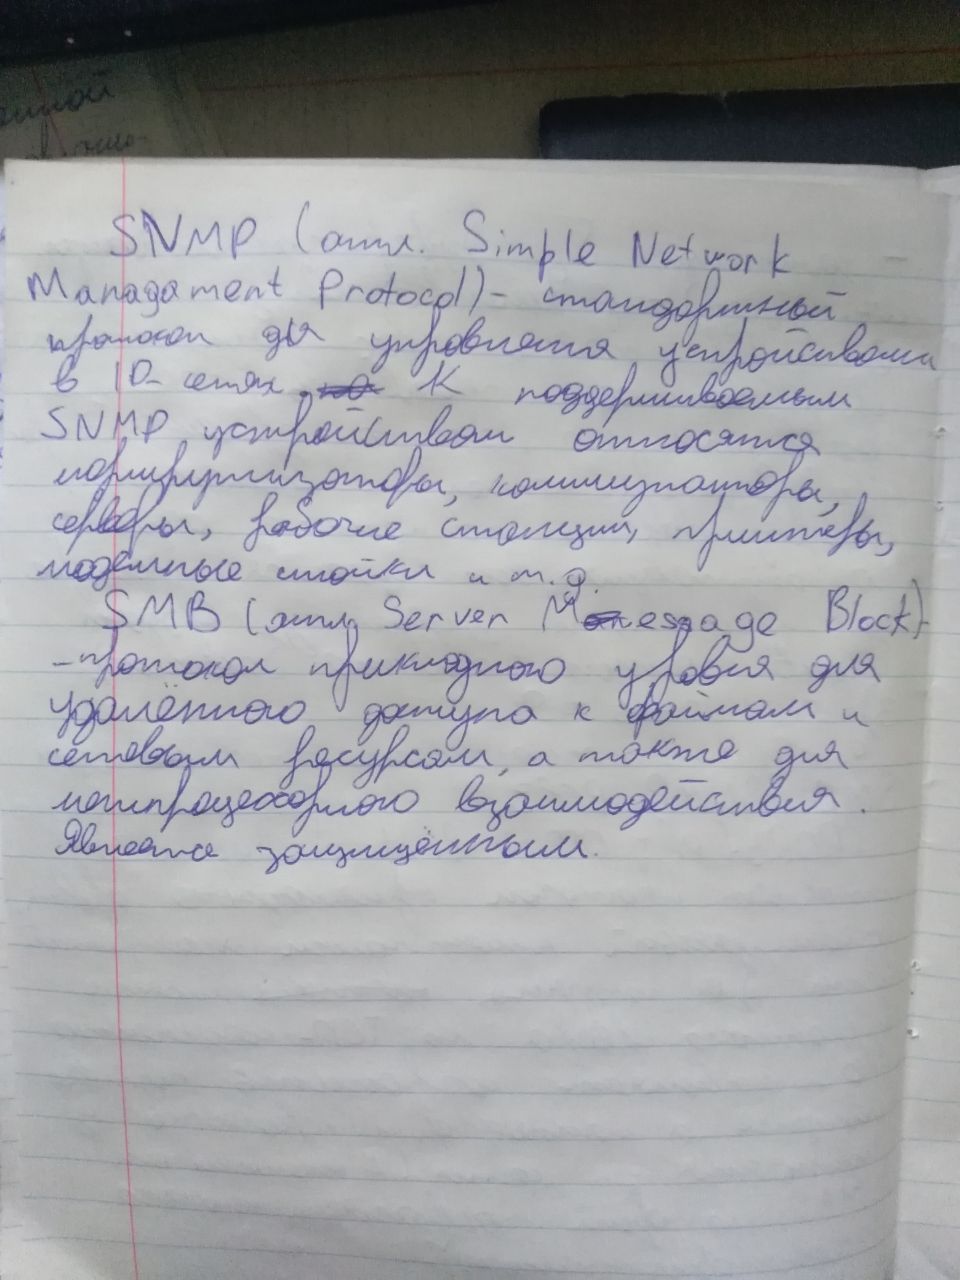 анной
SNMP (англ. Simple Network
Managament Protocol) - стандартный
протокол для управления устройствами
в IP-сетях. К поддерживаемым
SNMP устройствам относятся
маршрутизаторы, коммутаторы,
серверы, рабочие станции, принтеры,
модемные стойки и т.д.
SMB (англ. Server Message Block)-
-протокол прикладного уровня для
удалённого доступа к файлам и
сетевым ресурсам, а также для
межпроцессорного взаимодействия.
Является защищённым.